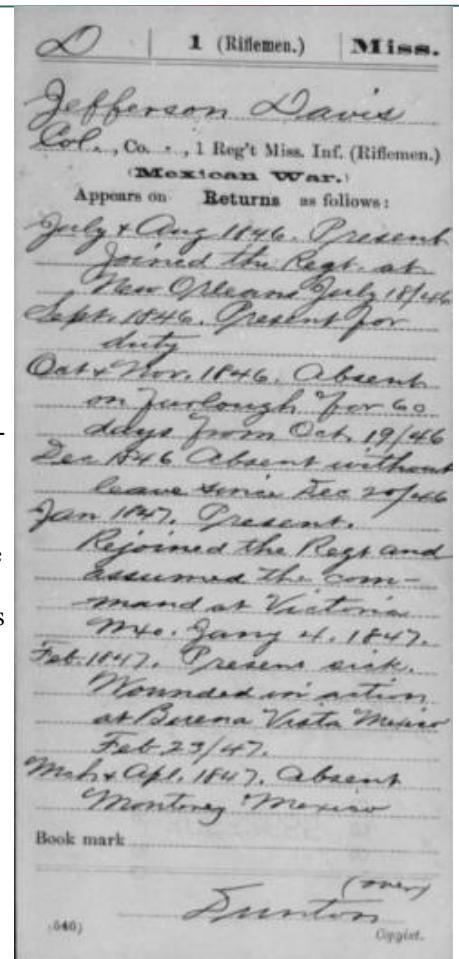 D | 1 (Riflemen.) | Miss.
Jefferson Davis
Col., Co. . , 1 Reg't Miss. Inf. (Riflemen.)
(Mexican War.)
Appears on Returns as follows:
July & Aug 1846. Present
Joined the Regt. at
New Orleans July 18/46
Sept. 1846. Present for
duty
Oct & Nov. 1846. Absent
on furlough for 60
days from Oct. 19/46
Dec 1846 Absent without
leave since Dec 20/46
Jan 1847. Present.
Rejoined the Regt and
assumed the com-
mand at Victoria
Mxo. Jany 4. 1847.
Feb. 1847. Present sick.
Wounded in action
at Buena Vista Mexico
Feb 23/47.
Mch & Apl. 1847. Absent
Monterey Mexico
Book mark
(over)
Dunton
(546) Copyist.
-
e
s